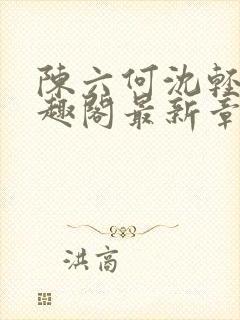 陳六何沈輕
趣閣最新章
洪高